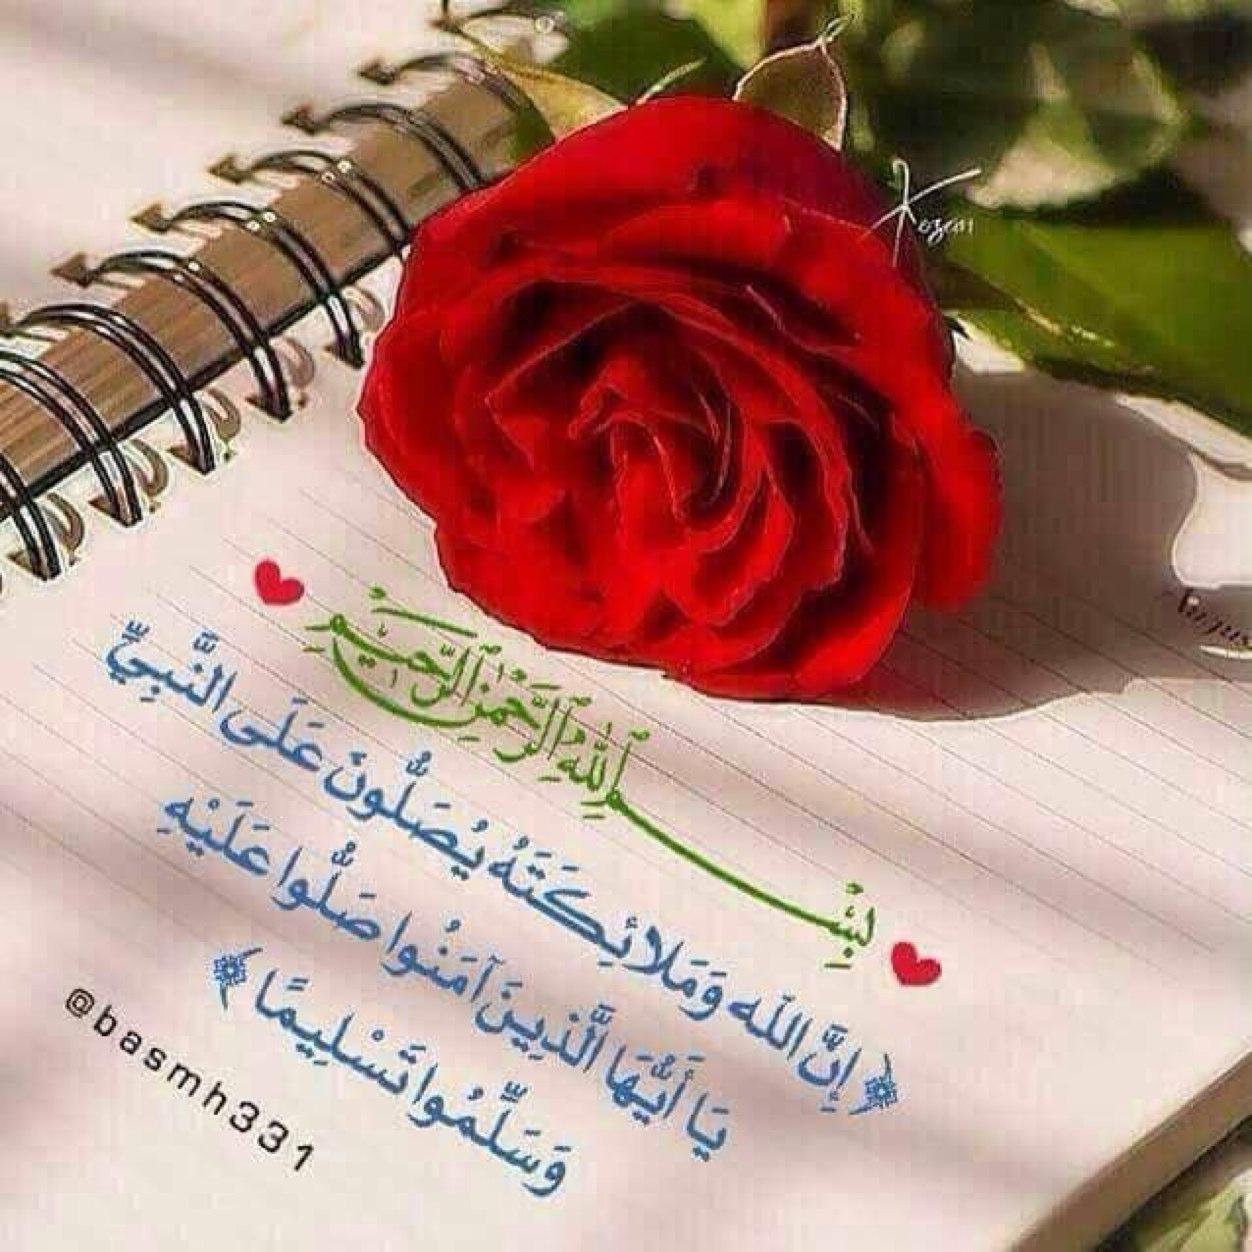 Kozem
بِسْمِ ٱللَّهِ ٱلرَّحْمَٰنِ ٱلرَّحِيمِ
﴿ إِنَّ اللَّهَ وَمَلَائِكَتَهُ يُصَلُّونَ عَلَى النَّبِيِّ
يَا أَيُّهَا الَّذِينَ آمَنُوا صَلُّوا عَلَيْهِ
وَسَلِّمُوا تَسْلِيمًا ﴾
@basmh331